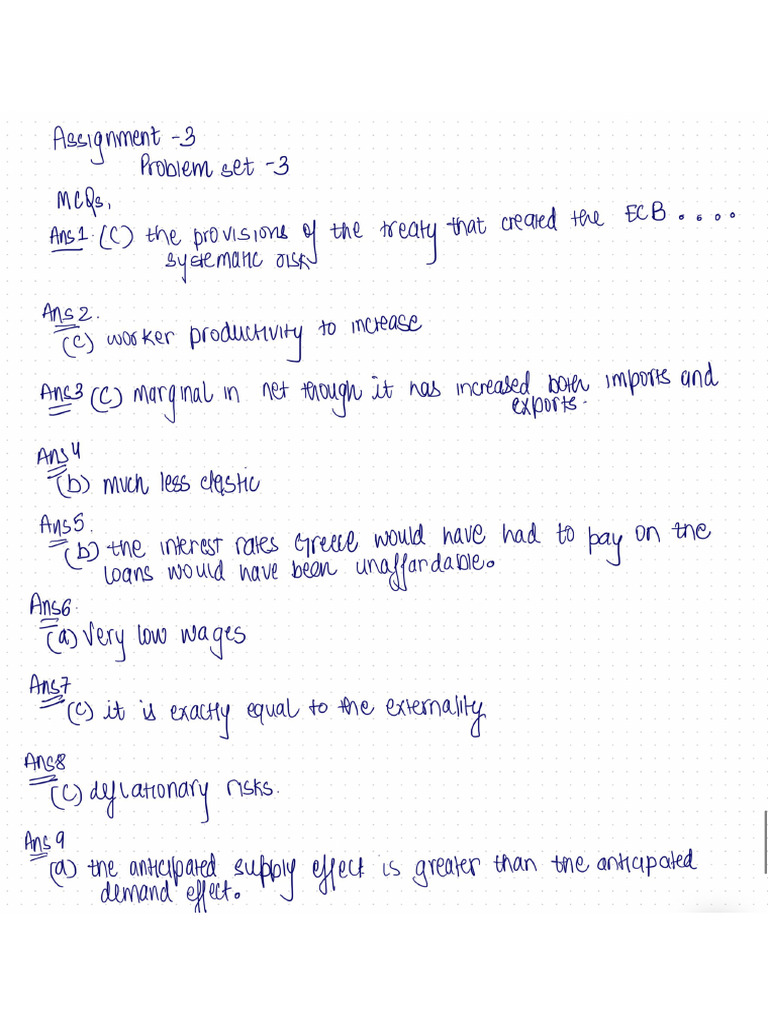 Assignment -3
Problem set -3
MCQs,
Ans1. (C) the provisions of the treaty that created the ECB ....
systematic risk
Ans2.
(c) worker productivity to increase
Ans3 (C) marginal in net though it has increased both imports and
exports.
Ans4
(b) much less elastic
Ans5.
(b) the interest rates Greece would have had to pay on the
loans would have been unaffardable.
Ans6.
(a) Very low wages
Ans7
(c) it is exactly equal to the externality
Ans8
(C) deflationary risks.
Ans9
(a) the anticipated supply effect is greater than the anticipated
demand effect.